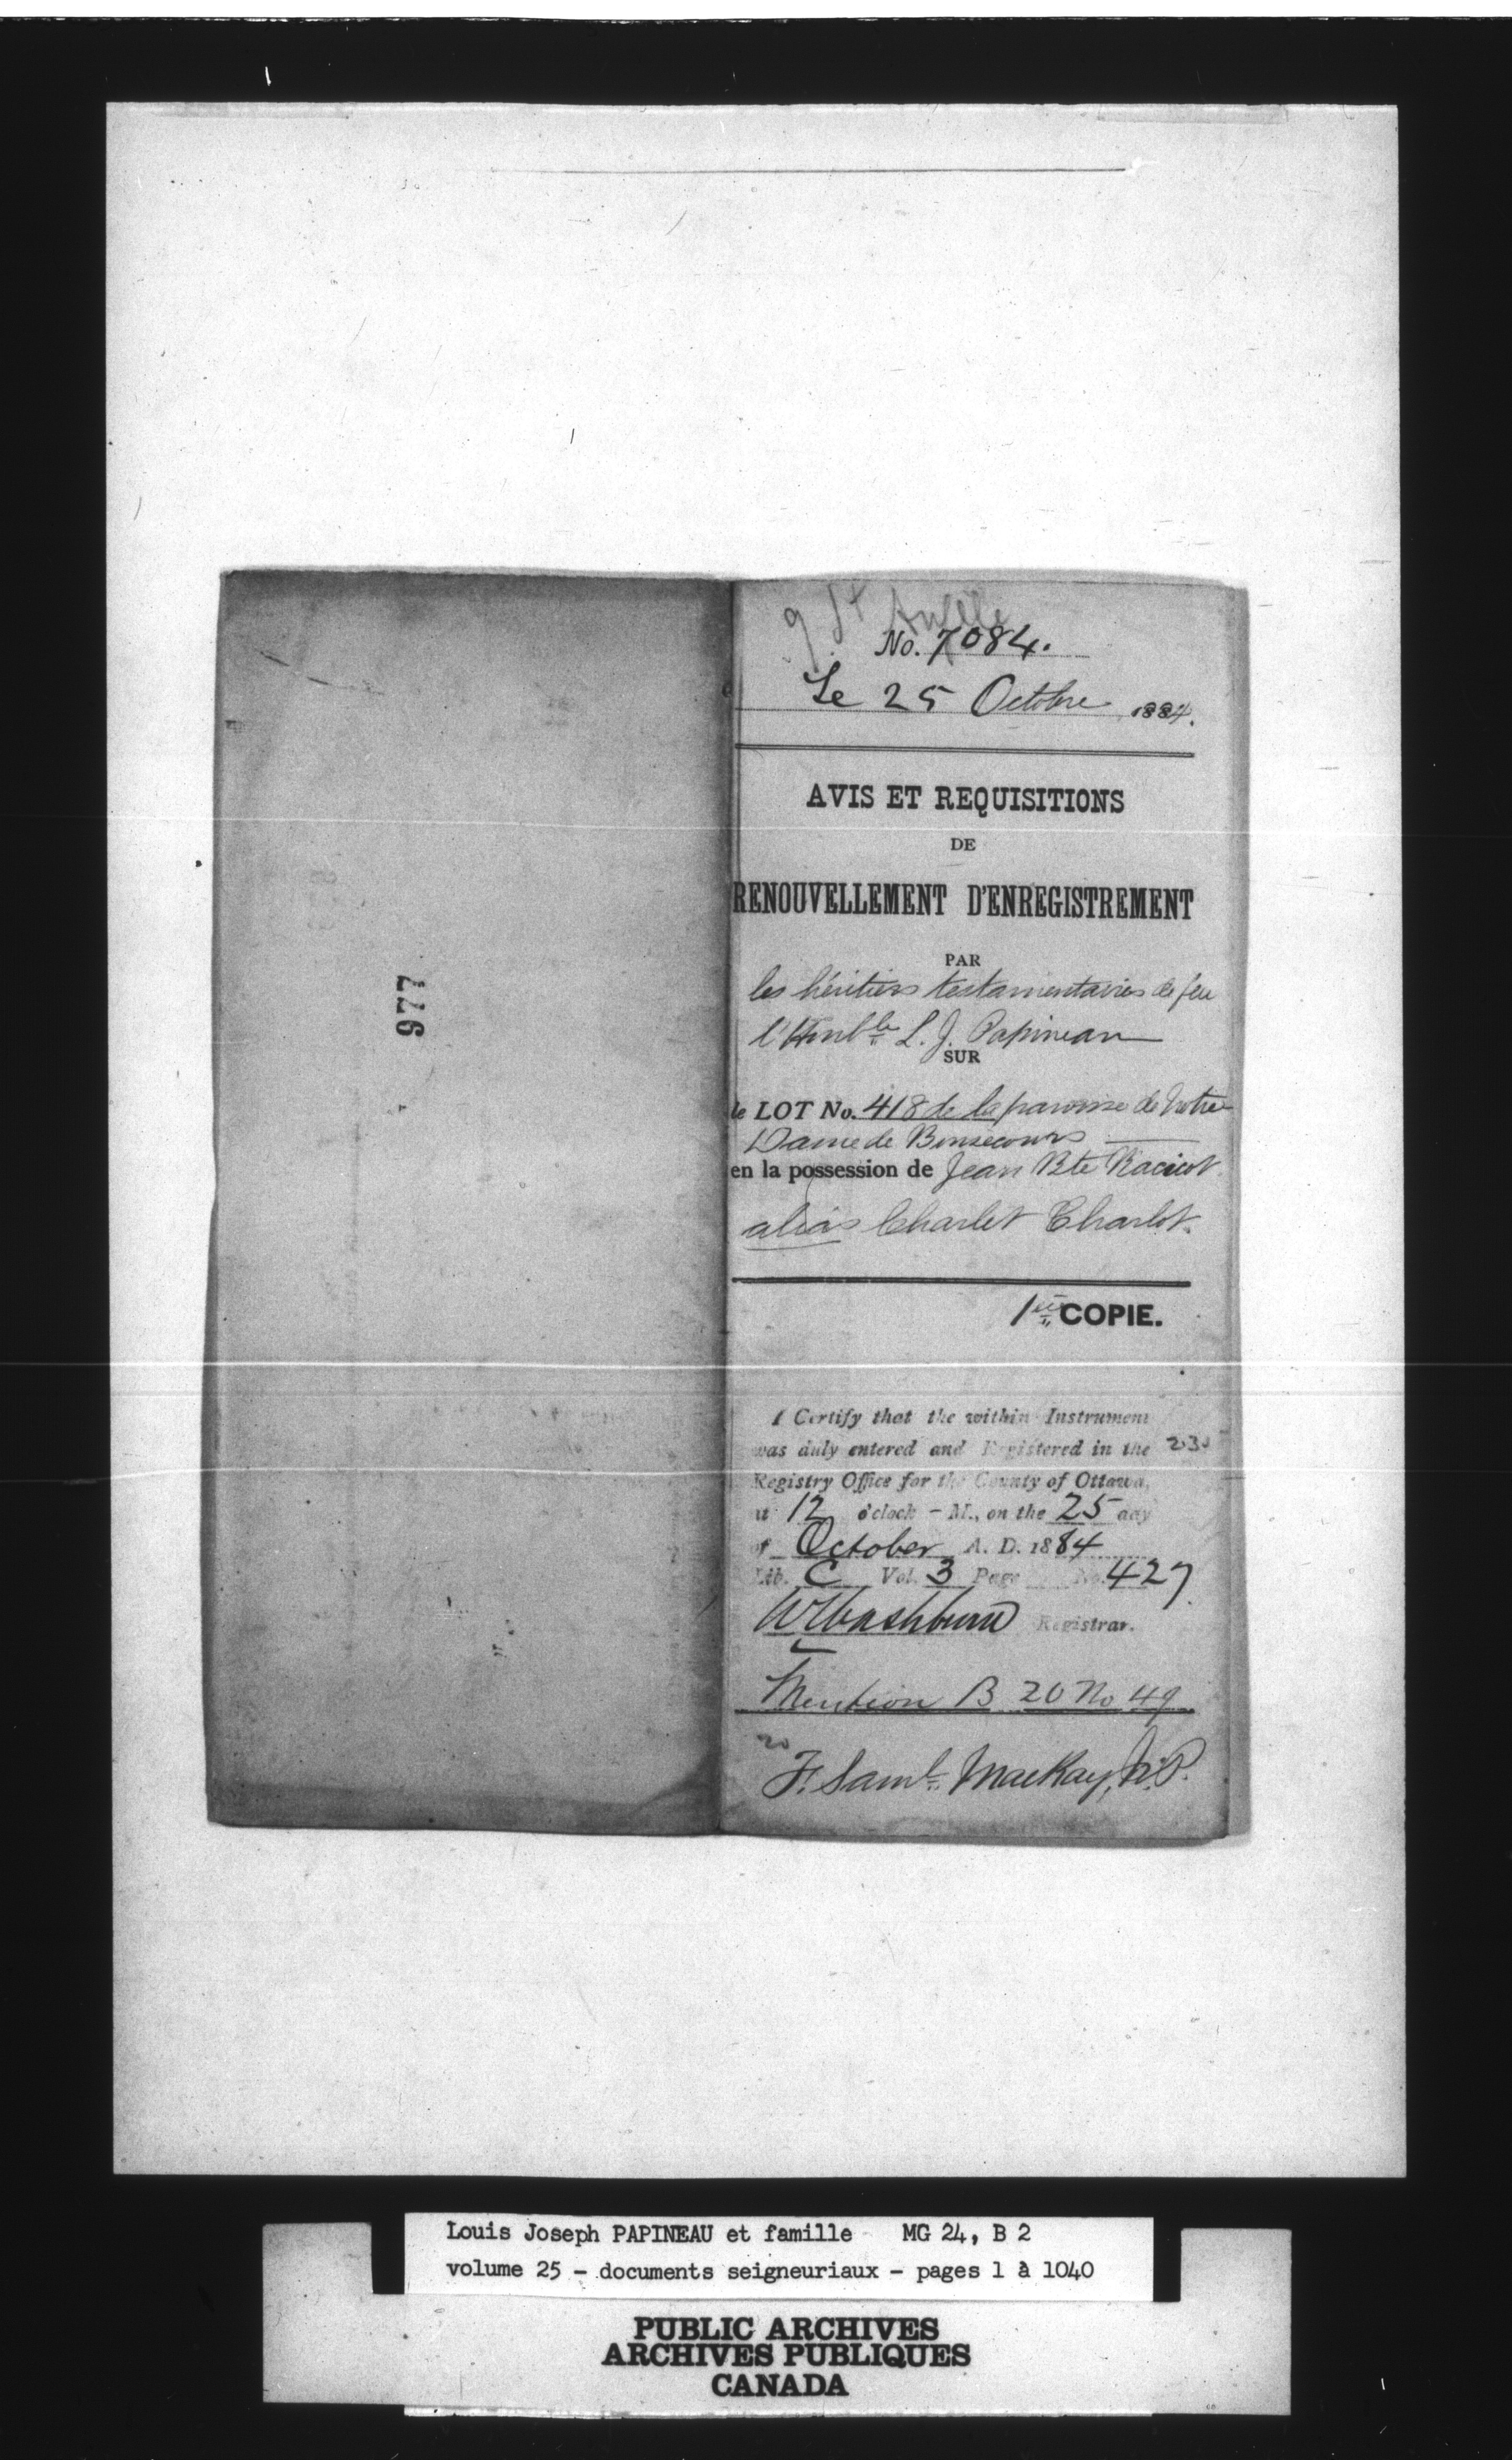 977
9 St
No. 7084.
Le 25 Octobre 1884.
AVIS ET REQUISITIONS
DE
RENOUVELLEMENT D'ENREGISTREMENT
PAR
les héritiers testamentaires de feu
l'Honble L. J. Papineau
SUR
le LOT No. 418 de la paroisse de Notre
Dame de Bonsecours
en la possession de Jean Bte Racicot
alias Charlet Charlot.
1ère COPIE.
I Certify that the within Instrument
was duly entered and Registered in the
Registry Office for the County of Ottawa,
at 12 o'clock - M., on the 25 day
of October A. D. 1884
Lib. C Vol. 3 Page No. 427
W Washburn Registrar.
Mention B 20 No 49
F. Saml. MacKay, N.P.
Louis Joseph PAPINEAU et famille MG 24, B 2
volume 25 - documents seigneuriaux - pages 1 à 1040
PUBLIC ARCHIVES
ARCHIVES PUBLIQUES
CANADA